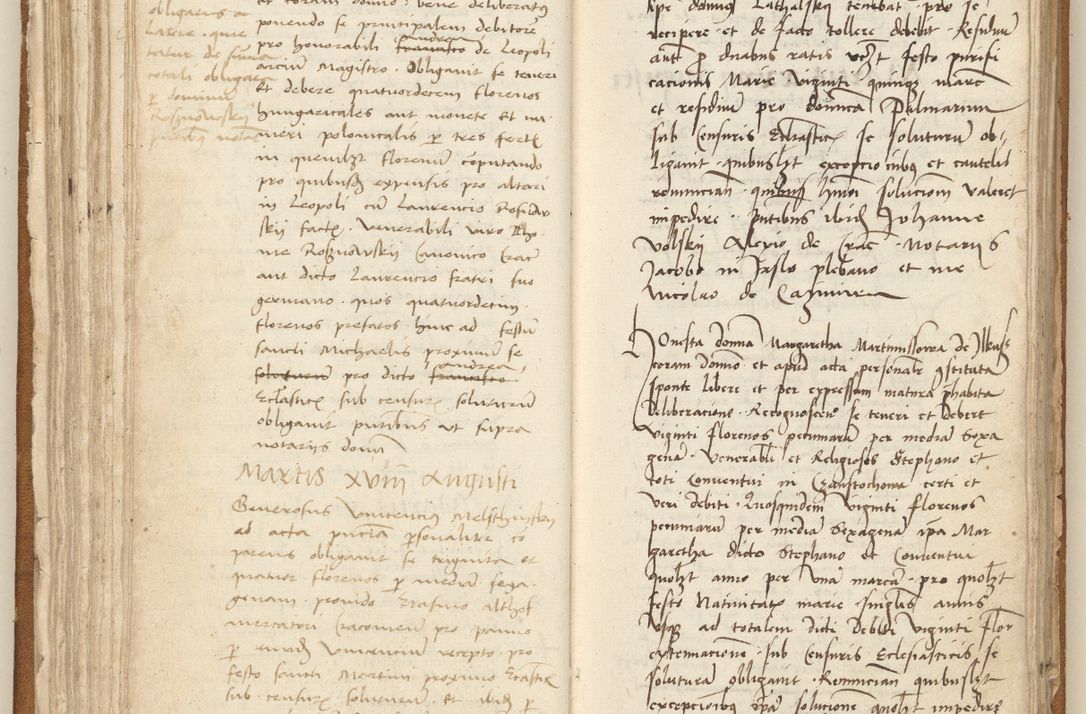 obligatus
latere que
totali obligatus
per dominum
Rosznowskij
et coram domino bene deliberatus
ponendo se principalem debitorem
andrea
pro honorabili francisco de Leopoli
arcium Magistro obligavit se teneri
Et debere quatuordecem florenos
hungaricales aut monete Et nu-
meri polonicalis per tres fert
in quemlibet florenum computando
pro quibusdam expensis pro altari
in Leopoli cum Laurencio Rosznow
skij fact venerabili viro
me Rosznowskij Canonico Crac
aut dicto Laurencio fratri suo
germano quos quatuordecim
florenos prefatos hinc ad festum
sancti Michaelis proximum se
andrea
soluturum pro dicto francisco
Ecclastic sub censuris soluturum
obligavit presentibus ut supra
notariis
Martis XVIII Augusti
Generosus Vincencius Melsthynskij
ad acta personaliter co
parens obligavit se triginta et
quatuor florenos per medium sexa
genam provido Erasmo althof
mercatori Cracoviensi pro panno
per eundem Vincencium recepto pro
festo sancti Martini proximo Ecclastic
sub censuris soluturum Et ibidem per
ipse dominus Lathalskij tenebat pro se
recipere et de facto tollere debebit Residuum
aut pro duabus ratis videlicet festo purifi
cacionis Marie viginti quinque marc
et residuum pro dominica Palmarum
sub Censuris Ecclastic se soluturum ob-
ligavit quibuslibet excepcionibus et cautelis
renuncian quibus hmoi solucionem valeret
impedire Presentibus ibidem Johanne
Volskij Alexio de Crac Notariis
Jacobo in Jaslo plebano et me
Nicolao de Cazimiria
Honesta domina Margaretha Martinussowa de Ilkusz
coram domino et apud acta personaliter constituta
sponte libere et per expressum matura prehabita
deliberacione Recognoscens se teneri et debere
Viginti florenos pecuniarum per mediam Sexa
genam Venerabili et Religiosis Stephano et
toti Conventui in Czanstochowa certi et
veri debiti Quosquidem viginti florenos
pecuniarum per mediam Sexagenam ipsa Mar
garetha dicto Stephano et Conventui
quolibet anno per unam marcam pro quolibet
festo Nativitatis marie singulis annis
Usque ad totalem dicti debiti viginti flor
extenuacionem sub Censuris Ecclesiasticis se
soluturam obligavit Renuncian quibuslibet
excepcionibus ipsam solucionem quolibet impedire